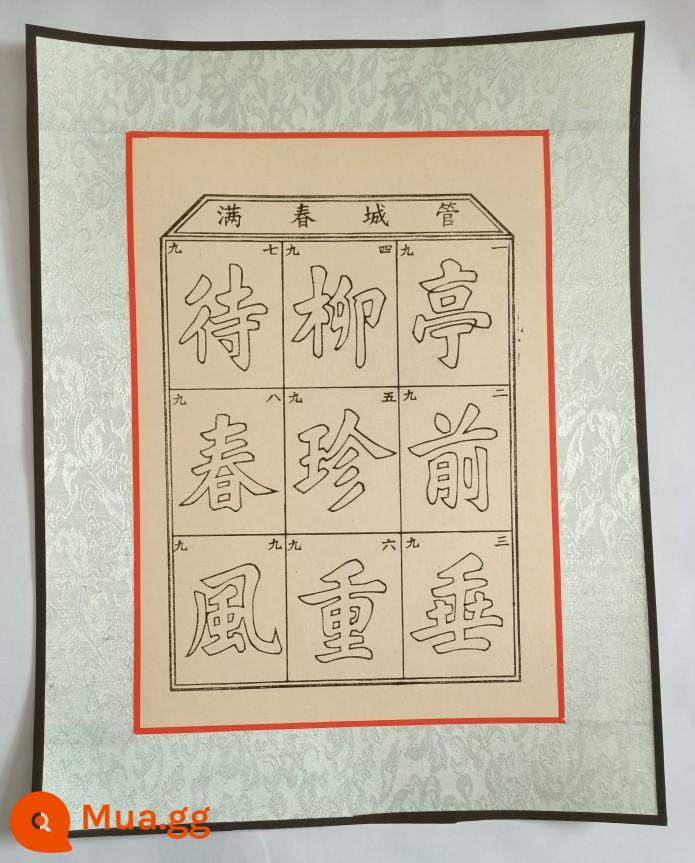 管城春满
一九
亭
二九
前
三九
垂
四九
柳
五九
珍
六九
重
七九
待
八九
春
九九
風
Mua.gg